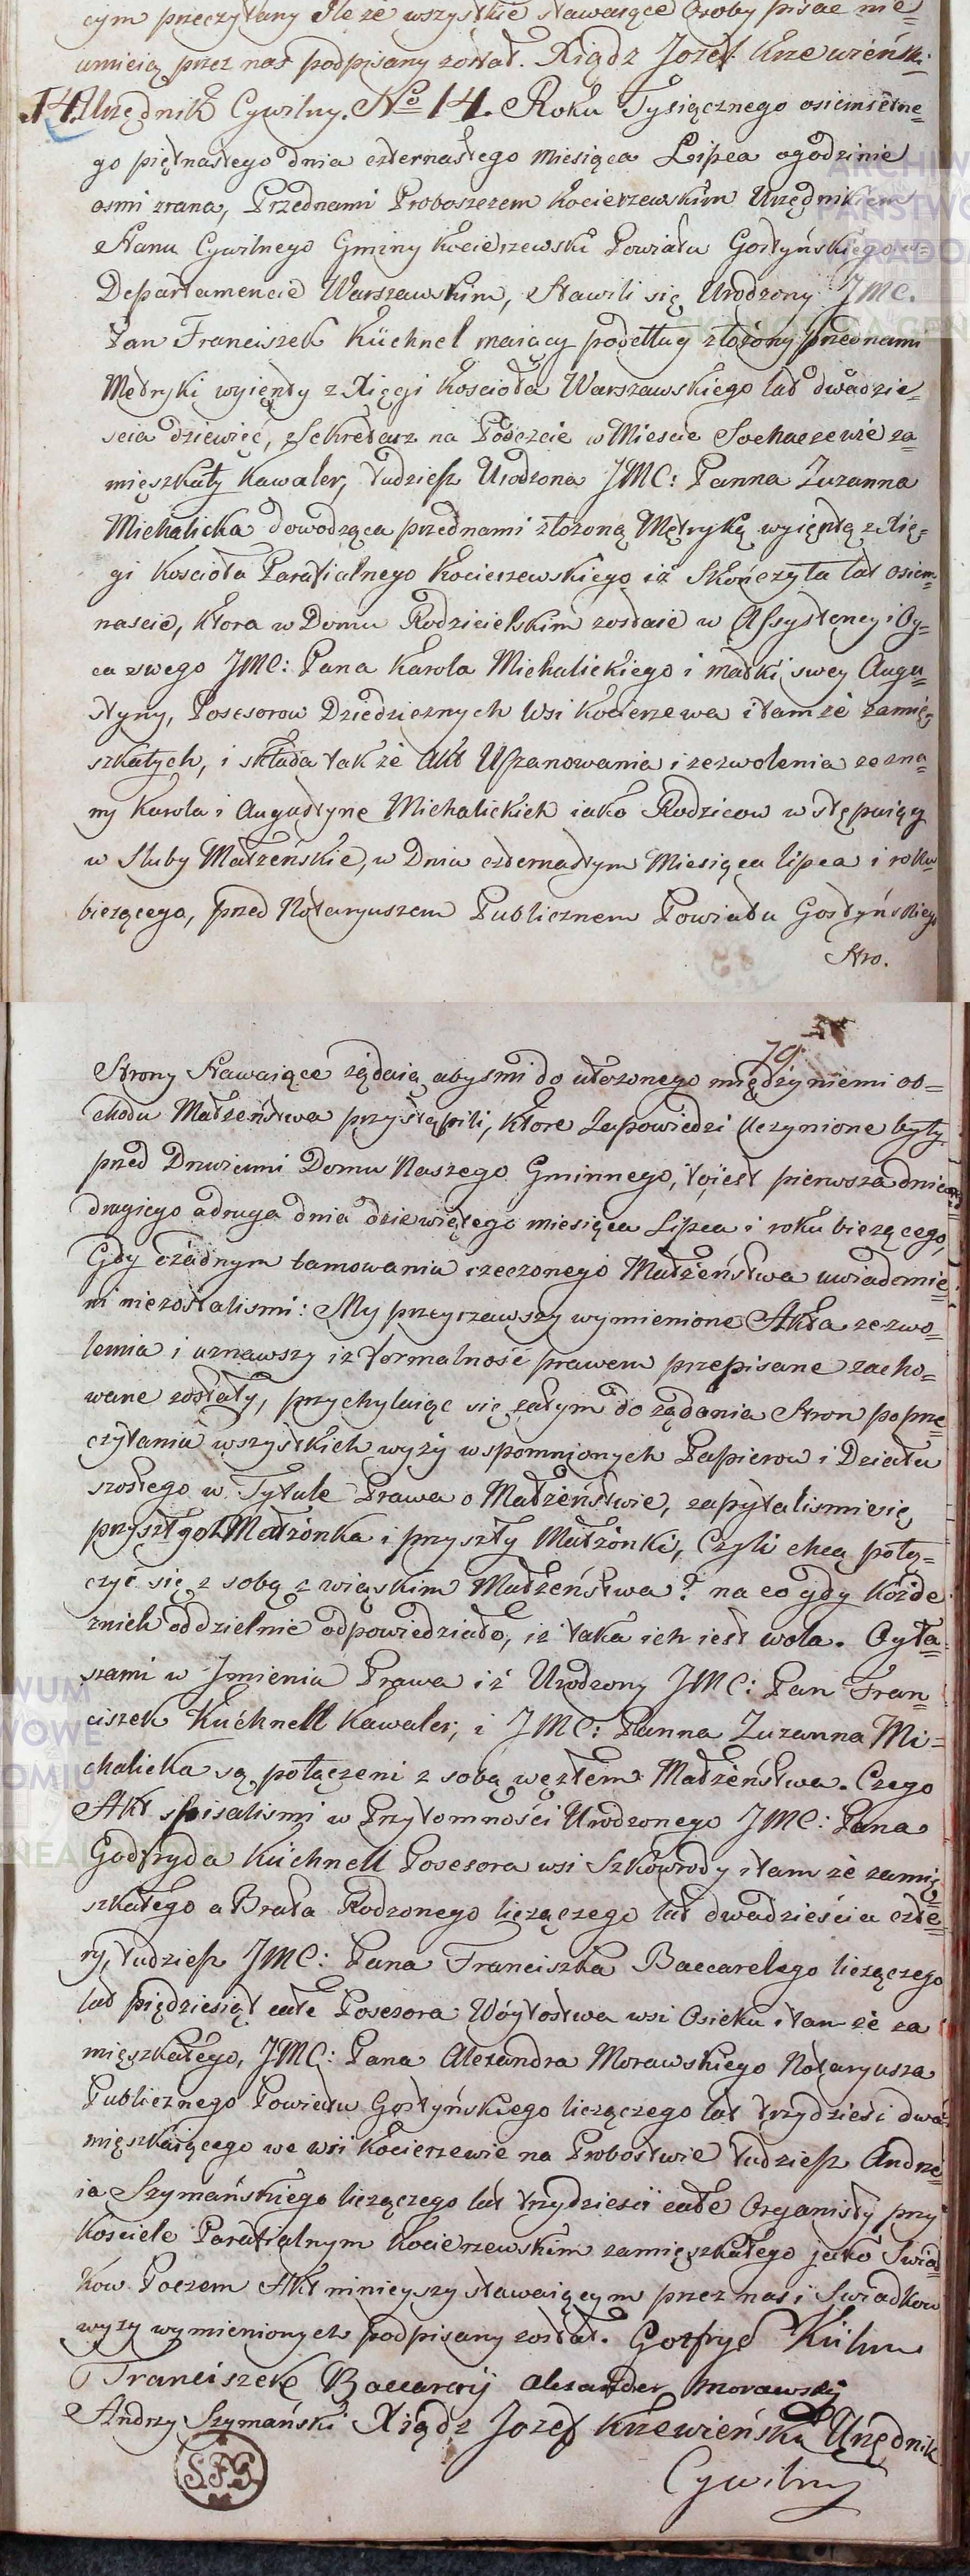 cym przeczytany Ile że wszystkie stawaiące Osoby pisać nie=
umieią przez nas podpisany został. Xiądz Jozef Krzewieński
14. Urzędnik Cywilny. No 14. Roku Tysiącznego osiemsetne=
go piętnastego dnia czternastego Miesiąca Lipca ogodzinie
osmi zrana, Przednami Proboszczem Kocierzewskim Urzędnikiem
Stanu Cywilnego Gminy Kocierzewski Powiatu Gostyńskiego w=
Departamencie Warszawskim, Stawili się Urodzony JMC.
Pan Franciszek Küchnel maiący podetług złożony przednami
Metryki wyięnty z Xięgi Kościoła Warszawskiego lat dwadzie=
scia dziewięć, Sekretarz na Poczcie w Miescie Sochaczewie za=
mięszkały Kawaler, tudzież Urodzona JMC: Panna Zuzanna
Michalicka dowodząca przednami złożoną Metryką wyiętą z Xię=
gi Kościoła Parafialnego Kocierzewskiego iż Skończyła lat osiem=
nascie, ktora w Domu Rodzicielskim zostaie w Assystencyi Oy=
ca swego JMC: Pana Karola Michalickiego i matki swey Augu=
styny, Posesorow Dziedzicznych Wsi Kocierzewa i tamże zamię=
szkałych, i składa także Akt Uszanowania i zezwolenia zezna=
ny Karola i Augustyne Michalickich iako Rodzicow wstępuiący
w Sluby Małżeńskie, w Dniu czternastym Miesiąca lipca i roku
bieżącego, przed Notaryuszem Publicznem Powiatu Gostyńskiego
Stro.
79.
Strony Stawaiące żądaią abysmi do ułożonego międzyniemi ob=
chodu Małżeństwa przystąpili, ktore Zapowiedzi Uczynione były
przed Drzwiami Domu Naszego Gminnego, toiest pierwsza dnia
drugiego adruga dnia dziewiętego miesiąca Lipca i roku bieżącego,
Gdy ożadnym tamowaniu rzeczonego Małżeństwa uwiadomie=
ni niezostalismi: My przyrzawszy wymienione Akta zezwo=
lenia i uznawszy iż formalność prawem przepisane zacho=
wane zostały, przychylaiąc się zatym do żądania Stron poprze=
czytaniu wszystkich wyży wspomnionych Papierow i Działu
szostego w Tytule Prawa o Małżeństwie, zapytalismi się
przyszłgo Małżonka i przyszły Małżonki, Czyli chcą połą=
czyć się z sobą związkim Małżeństwa? na co gdy każde
znich oddzielnie odpowiedziało, iż taka ich iest wola. Ogła=
szami w Jmieniu Prawa iż Urodzony JMC: Pan Fran=
ciszek Küchnell Kawaler, i JMC: Panna Zuzanna Mi=
chalicka są połączeni z sobą węzłem Małżeństwa. Czego
Akt spisalismi w Przytomności Urodzonego JMC: Pana
Godfryda Küchnell Posesora wsi Szkowrody i tamże zamię=
szkałego a Brata Rodzonego liczączego lat dwadzieścia czte=
ry, tudzież JMC: Pana Franciszka Baccarelego liczączego
lat pięдziesiąt całe Posesora Wóytostwa wsi Osieku i tamże za
mięszkałego, JMC: Pana Alexandra Morawskiego Notaryusza
Publicznego Powiatu Gostyńskiego liczączego lat trzydzieści dwa
mięszkaiącego we wsi Kocierzewie na Probostwie tudzież Andrze=
ia Szymańskiego liczączego lat trzydziesci całe Organisty przy
Kosciele Parafialnym Kocierzewskim zamięszkałego jako Swiad=
kow Poczem Akt ninieyszy stawaiącym przez nas i Swiadkow
wyży wymienionych podpisany został. Gotfryd Kühn
Franciszek Baccarely Alexander Morawski
Andrzy Szymański Xiądz Jozef Krzewieński Urzędnik
Cywilny
SFG